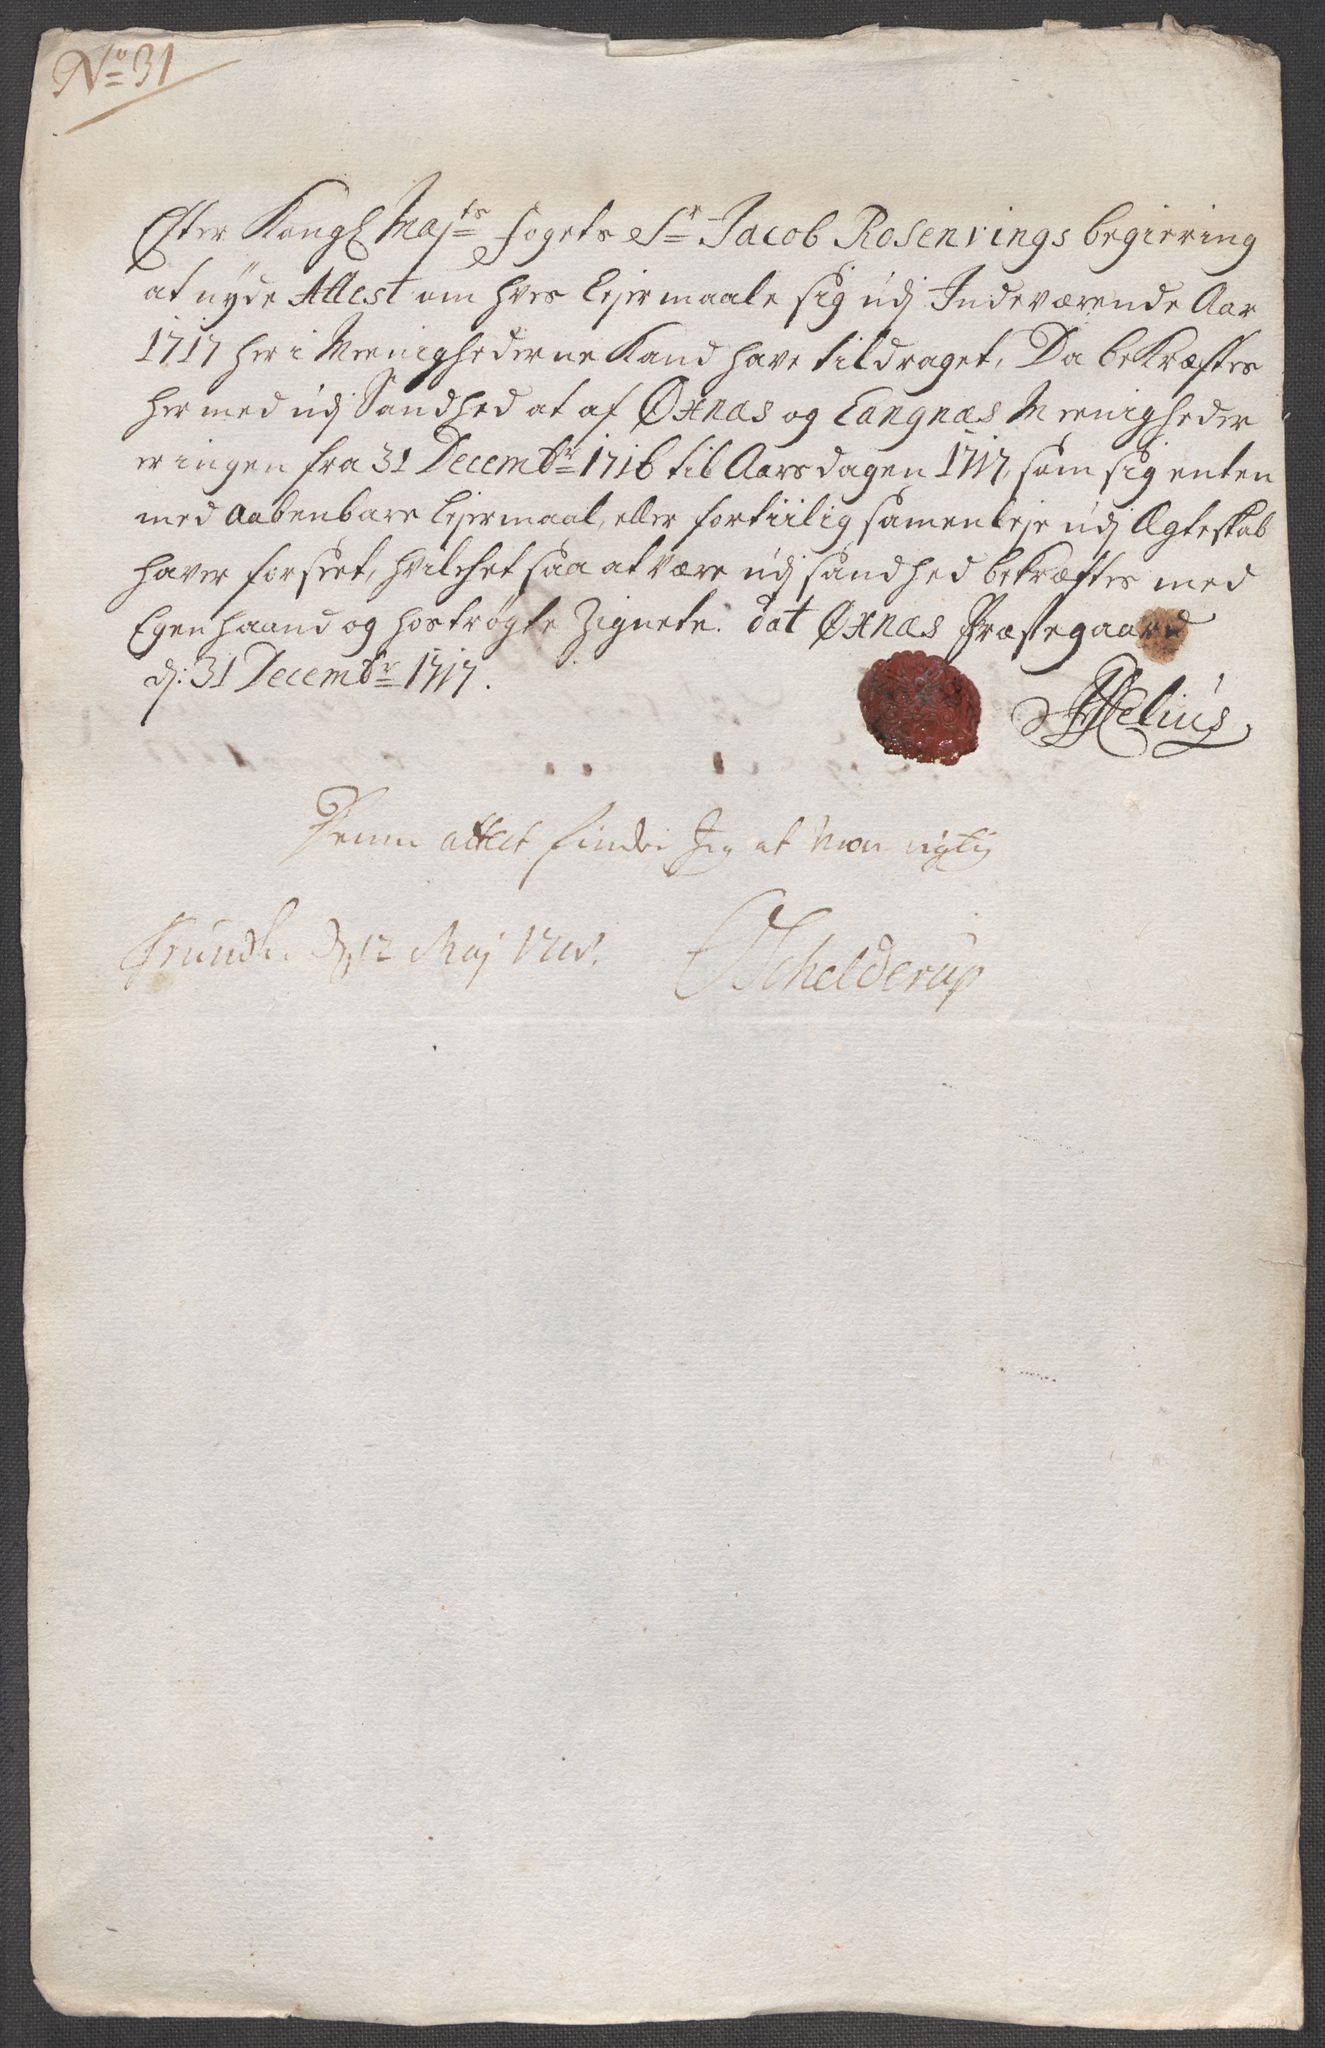 No 31
Efter Kongl Majts fogets Sr Jacob Rosenvings begiering
at nyde Attest om hves Lejermaale sig udj Indeværende Aar
1717 her i Meenighederne Kand have tildraget, Da bekræftes
hermed udj Sandhed at af Øxnæs og Langnæs Meenigheder
er ingen fra 31 Decembr 1716 til Aarsdagen 1717, som sig enten
med Aabenbare Lejermaal, eller fortiilig samenleje udj Ægteskab
haver forseet, hvilchet saa at være udj sandhed bekræftes med
Egen haand og hostrøgte Zignete. dat Øxnæs Præstegaard
dj: 31 Decembr 1717.
Denne attest finder Jeg at være rigtig
Trundh. d. 12 Maj 1718.
Schelderup